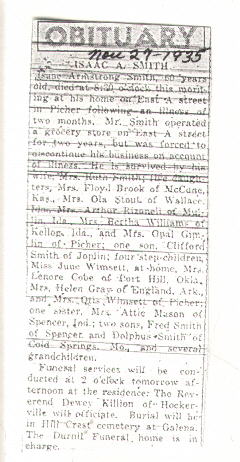 OBITUARY
Nov 27-1935
ISAAC A. SMITH
Isaac Armstrong Smith, 60 years
old, died at o'clock this morn-
ing at his home on East A street
in Picher following an illness of
two months. Mr. Smith operated
a grocery store on East A street
for two years, but was forced to
discontinue his business on account
of illness. He is survived by his
wife, Mrs. Ruth Smith; five daugh-
ters, Mrs. Floyd Brook of McCune,
Kas., Mrs. Ola Stout of Wallace,
Ida., Mrs. Arthur of
Ida., Mrs. Bertha Williams of
Kellog, Ida., and Mrs. Opal
of Picher; one son, Clifford
Smith of Joplin; four step-children,
Miss June Wimsett, at home, Mrs.
Lenore Cobe of Fort Hill, Okla.,
Mrs. Helen Gray of England, Ark.,
and Mrs. Otis Wimsett of Picher;
one sister, Mrs. Attie Mason of
Spencer, Ind.; two sons, Fred Smith
of Spencer and Dolphus Smith of
Cold Springs, Mo., and several
grandchildren.
Funeral services will be con-
ducted at 2 o'clock tomorrow af-
ternoon at the residence. The Rev-
erend Dewey Killion of Hocker-
ville will officiate. Burial will be
in Hill Crest cemetery at Galena.
The Durnil Funeral home is in
charge.